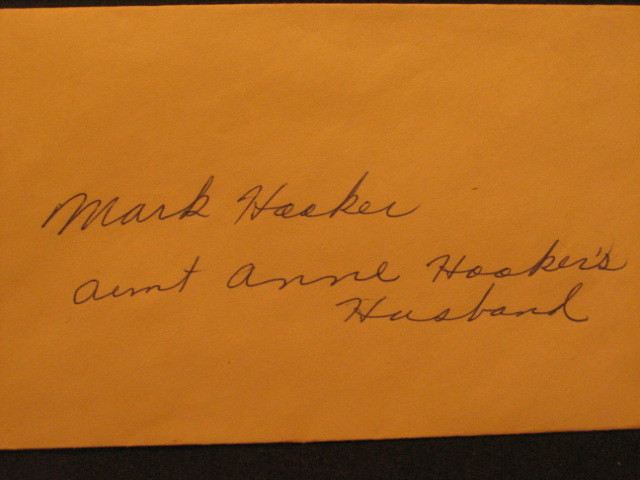 Mark Hooker
aunt Anne Hooker's
Husband